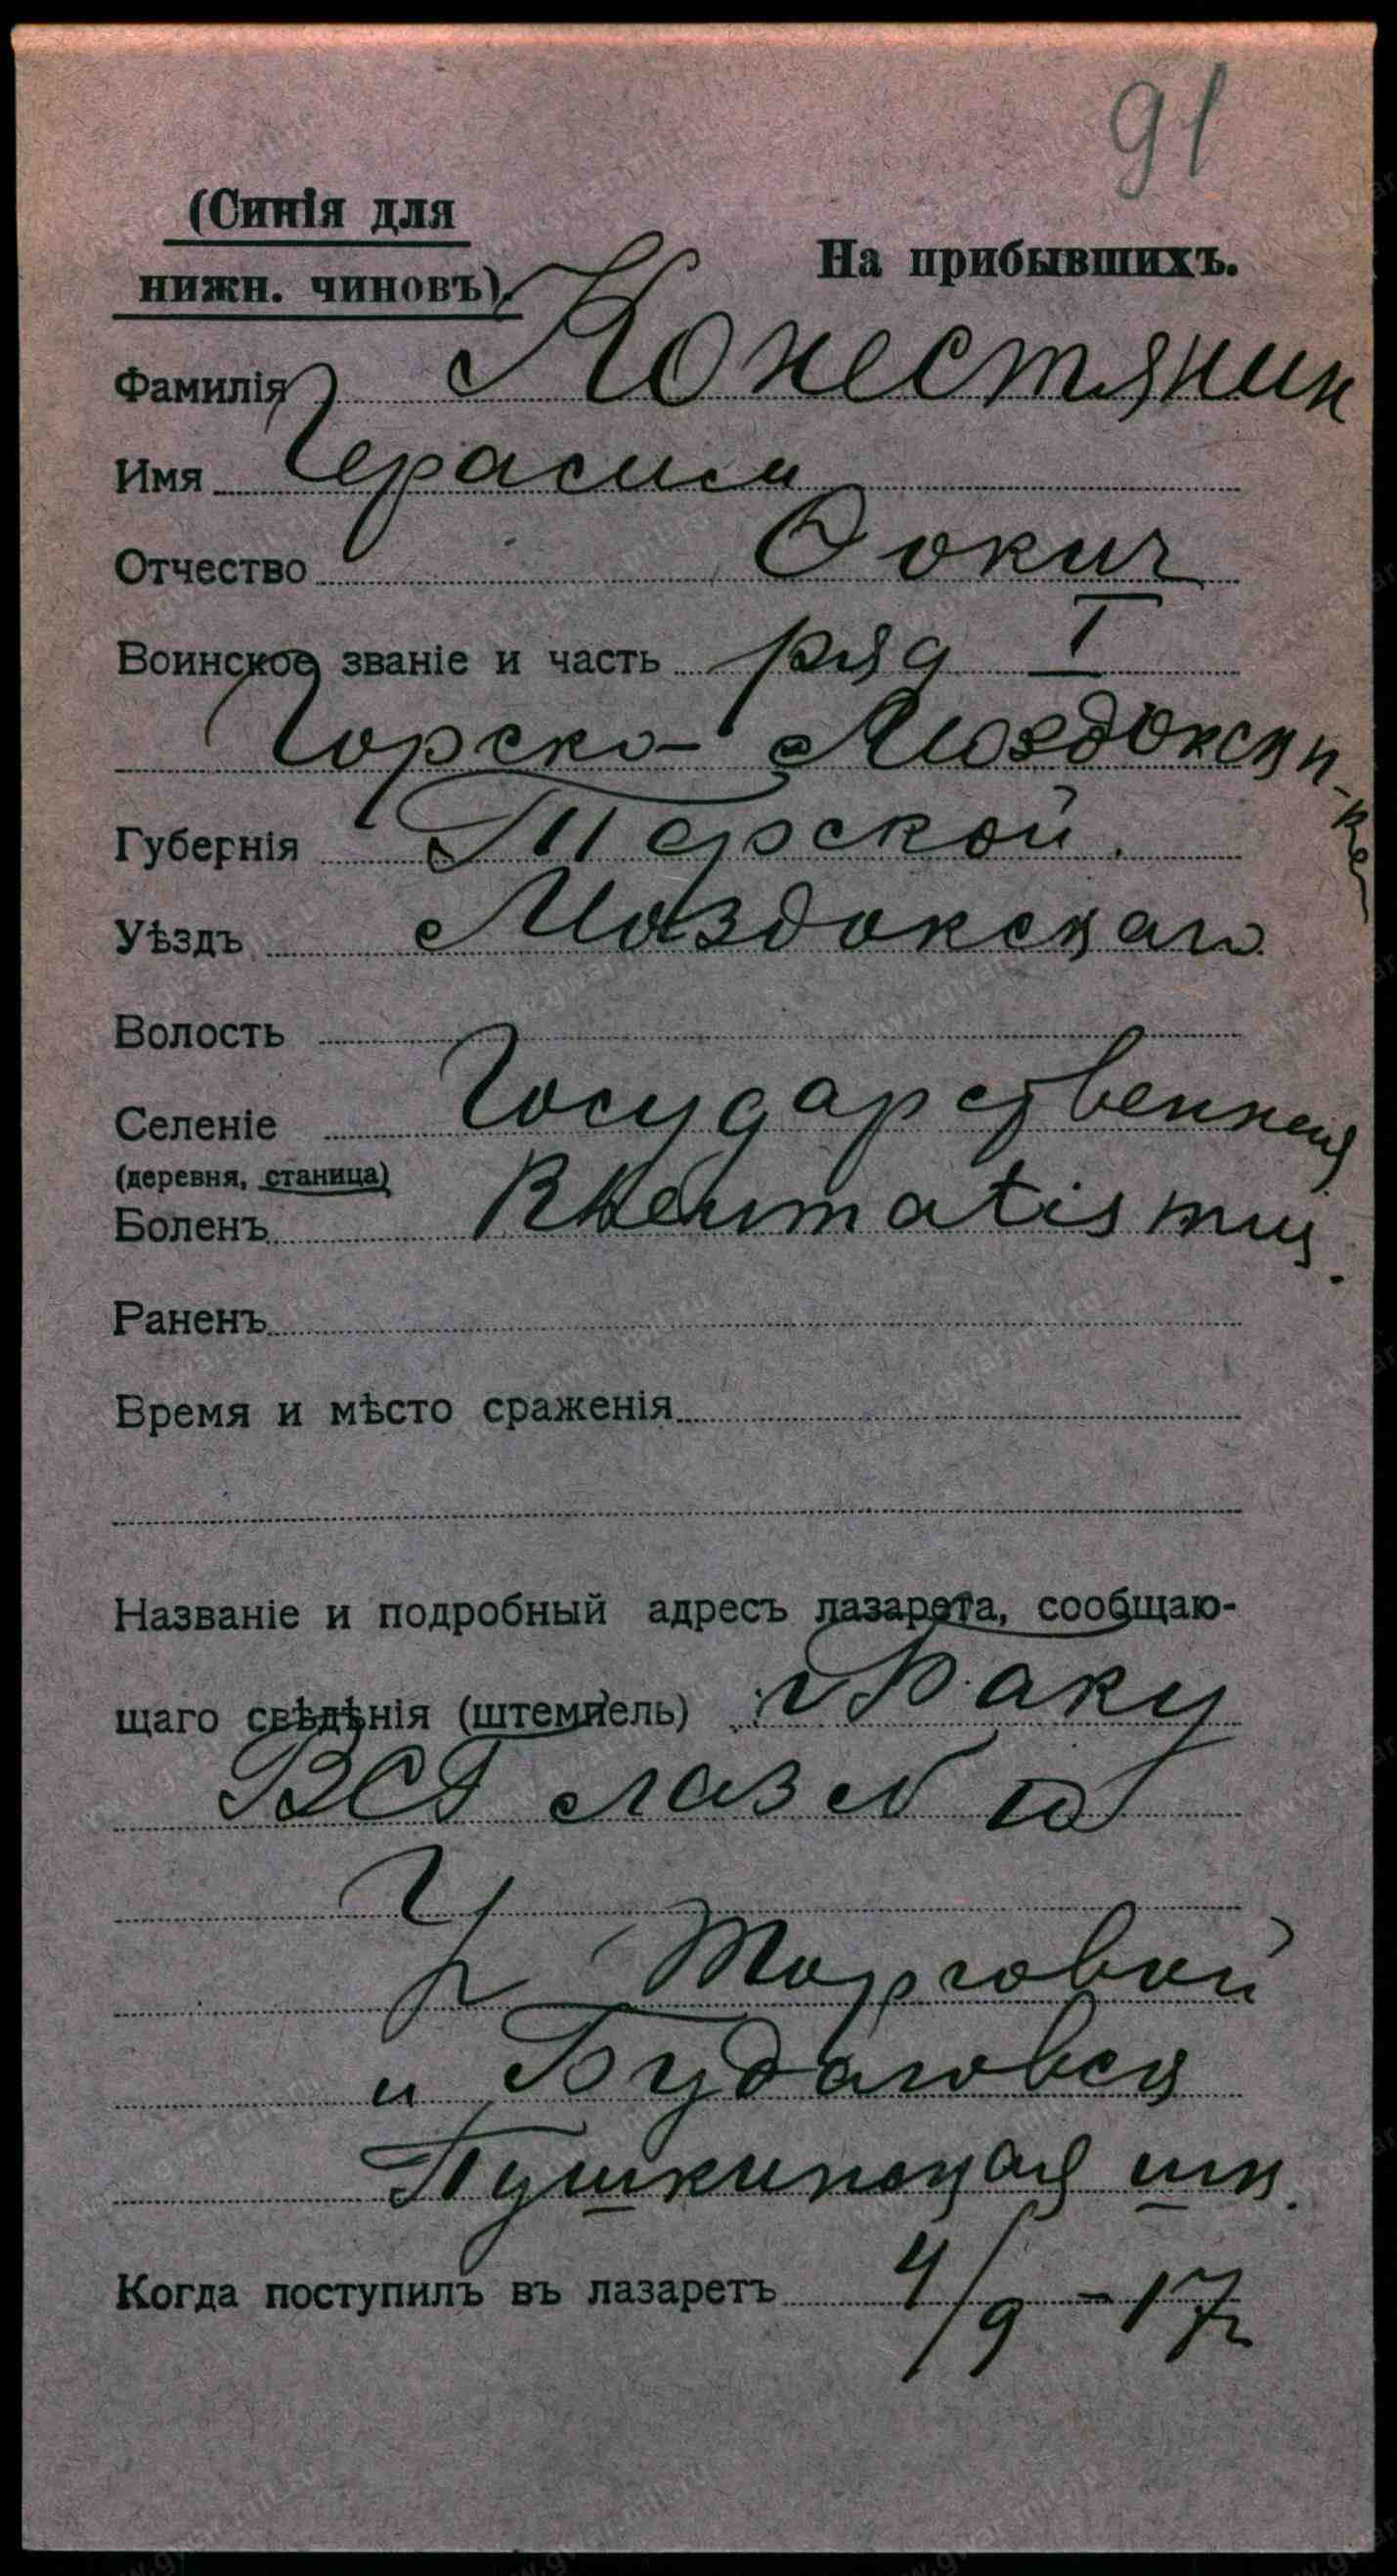 91
(Синія для
нижн. чиновъ).
На прибывшихъ.
Фамилія Конестяник
Имя Герасим
Отчество Фокич
Воинское званіе и часть ряд I
Горско-Моздокск
Губернія Терской.
Уѣздъ Моздокскаго
Волость
Селеніе Государственная
(деревня, станица)
Боленъ Rheumatismus.
Раненъ
Время и мѣсто сраженія
Названіе и подробный адресъ лазарета, сообщаю-
щаго свѣдѣнія (штемпель) г Баку
ВСГ лаз N
У
Торговой
и Будаговск
Пушкинская шк.
Когда поступилъ въ лазаретъ 4/9-17г